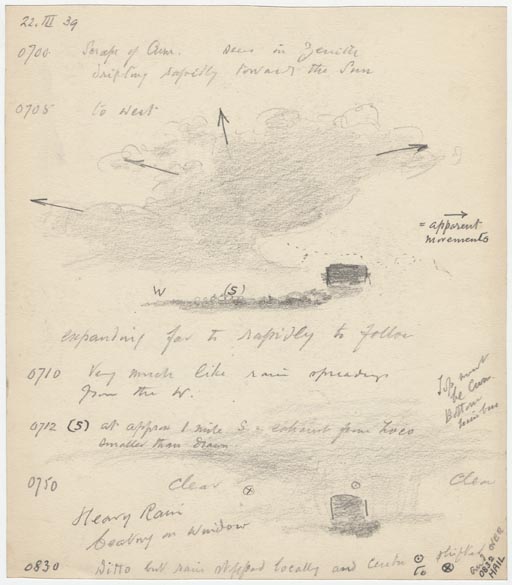 22.III 39
0700 Scrape of Cum. seen in Zenith
drifting rapidly towards the Sun
0705 to west
= apparent
movements
W (S)
expanding far to rapidly to follow
0710 Very much like rain spreading
from the W.
Top must
be Cum
Bottom
Nimbus
0712 (S) at approx 1 mile S = exhaust from Loco
smaller than drawn
0750 Clear Clear
Heavy Rain
beating on window
0830 Ditto but rain stopped locally and to
0832
HAIL